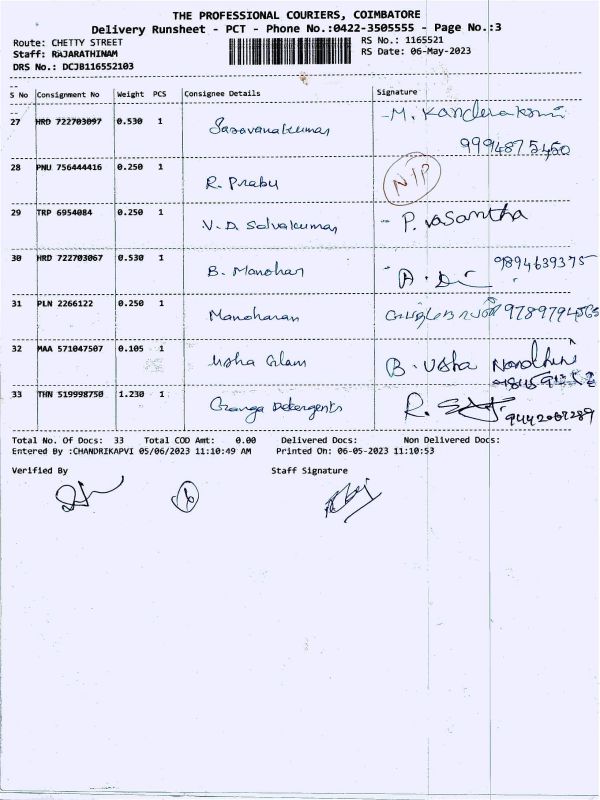 THE PROFESSIONAL COURIERS, COIMBATORE
Delivery Runsheet - PCT - Phone No.:0422-3505555 - Page No.:3
Route: CHETTY STREET RS No.: 1165521
Staff: RAJARATHINAM RS Date: 06-May-2023
DRS No.: DCJB116552103
S No Consignment No Weight PCS Consignee Details Signature
27 HRD 722703097 0.530 1 Saravanakumar - M.
9994875450
28 PNU 756444416 0.250 1 R. Prabu N/P
29 TRP 6954084 0.250 1 V. D. Selvakumar - P. vasantha
30 HRD 722703067 0.530 1 B. Manohar 9894639375
31 PLN 2266122 0.250 1 Manoharan
32 MAA 571047507 0.105 1 Usha B. Usha Nandhini
33 THN 519998750 1.230 1 Ganga Detergents R.
Total No. Of Docs: 33 Total COD Amt: 0.00 Delivered Docs: Non Delivered Docs:
Entered By :CHANDRIKAPVI 05/06/2023 11:10:49 AM Printed On: 06-05-2023 11:10:53
Verified By Staff Signature